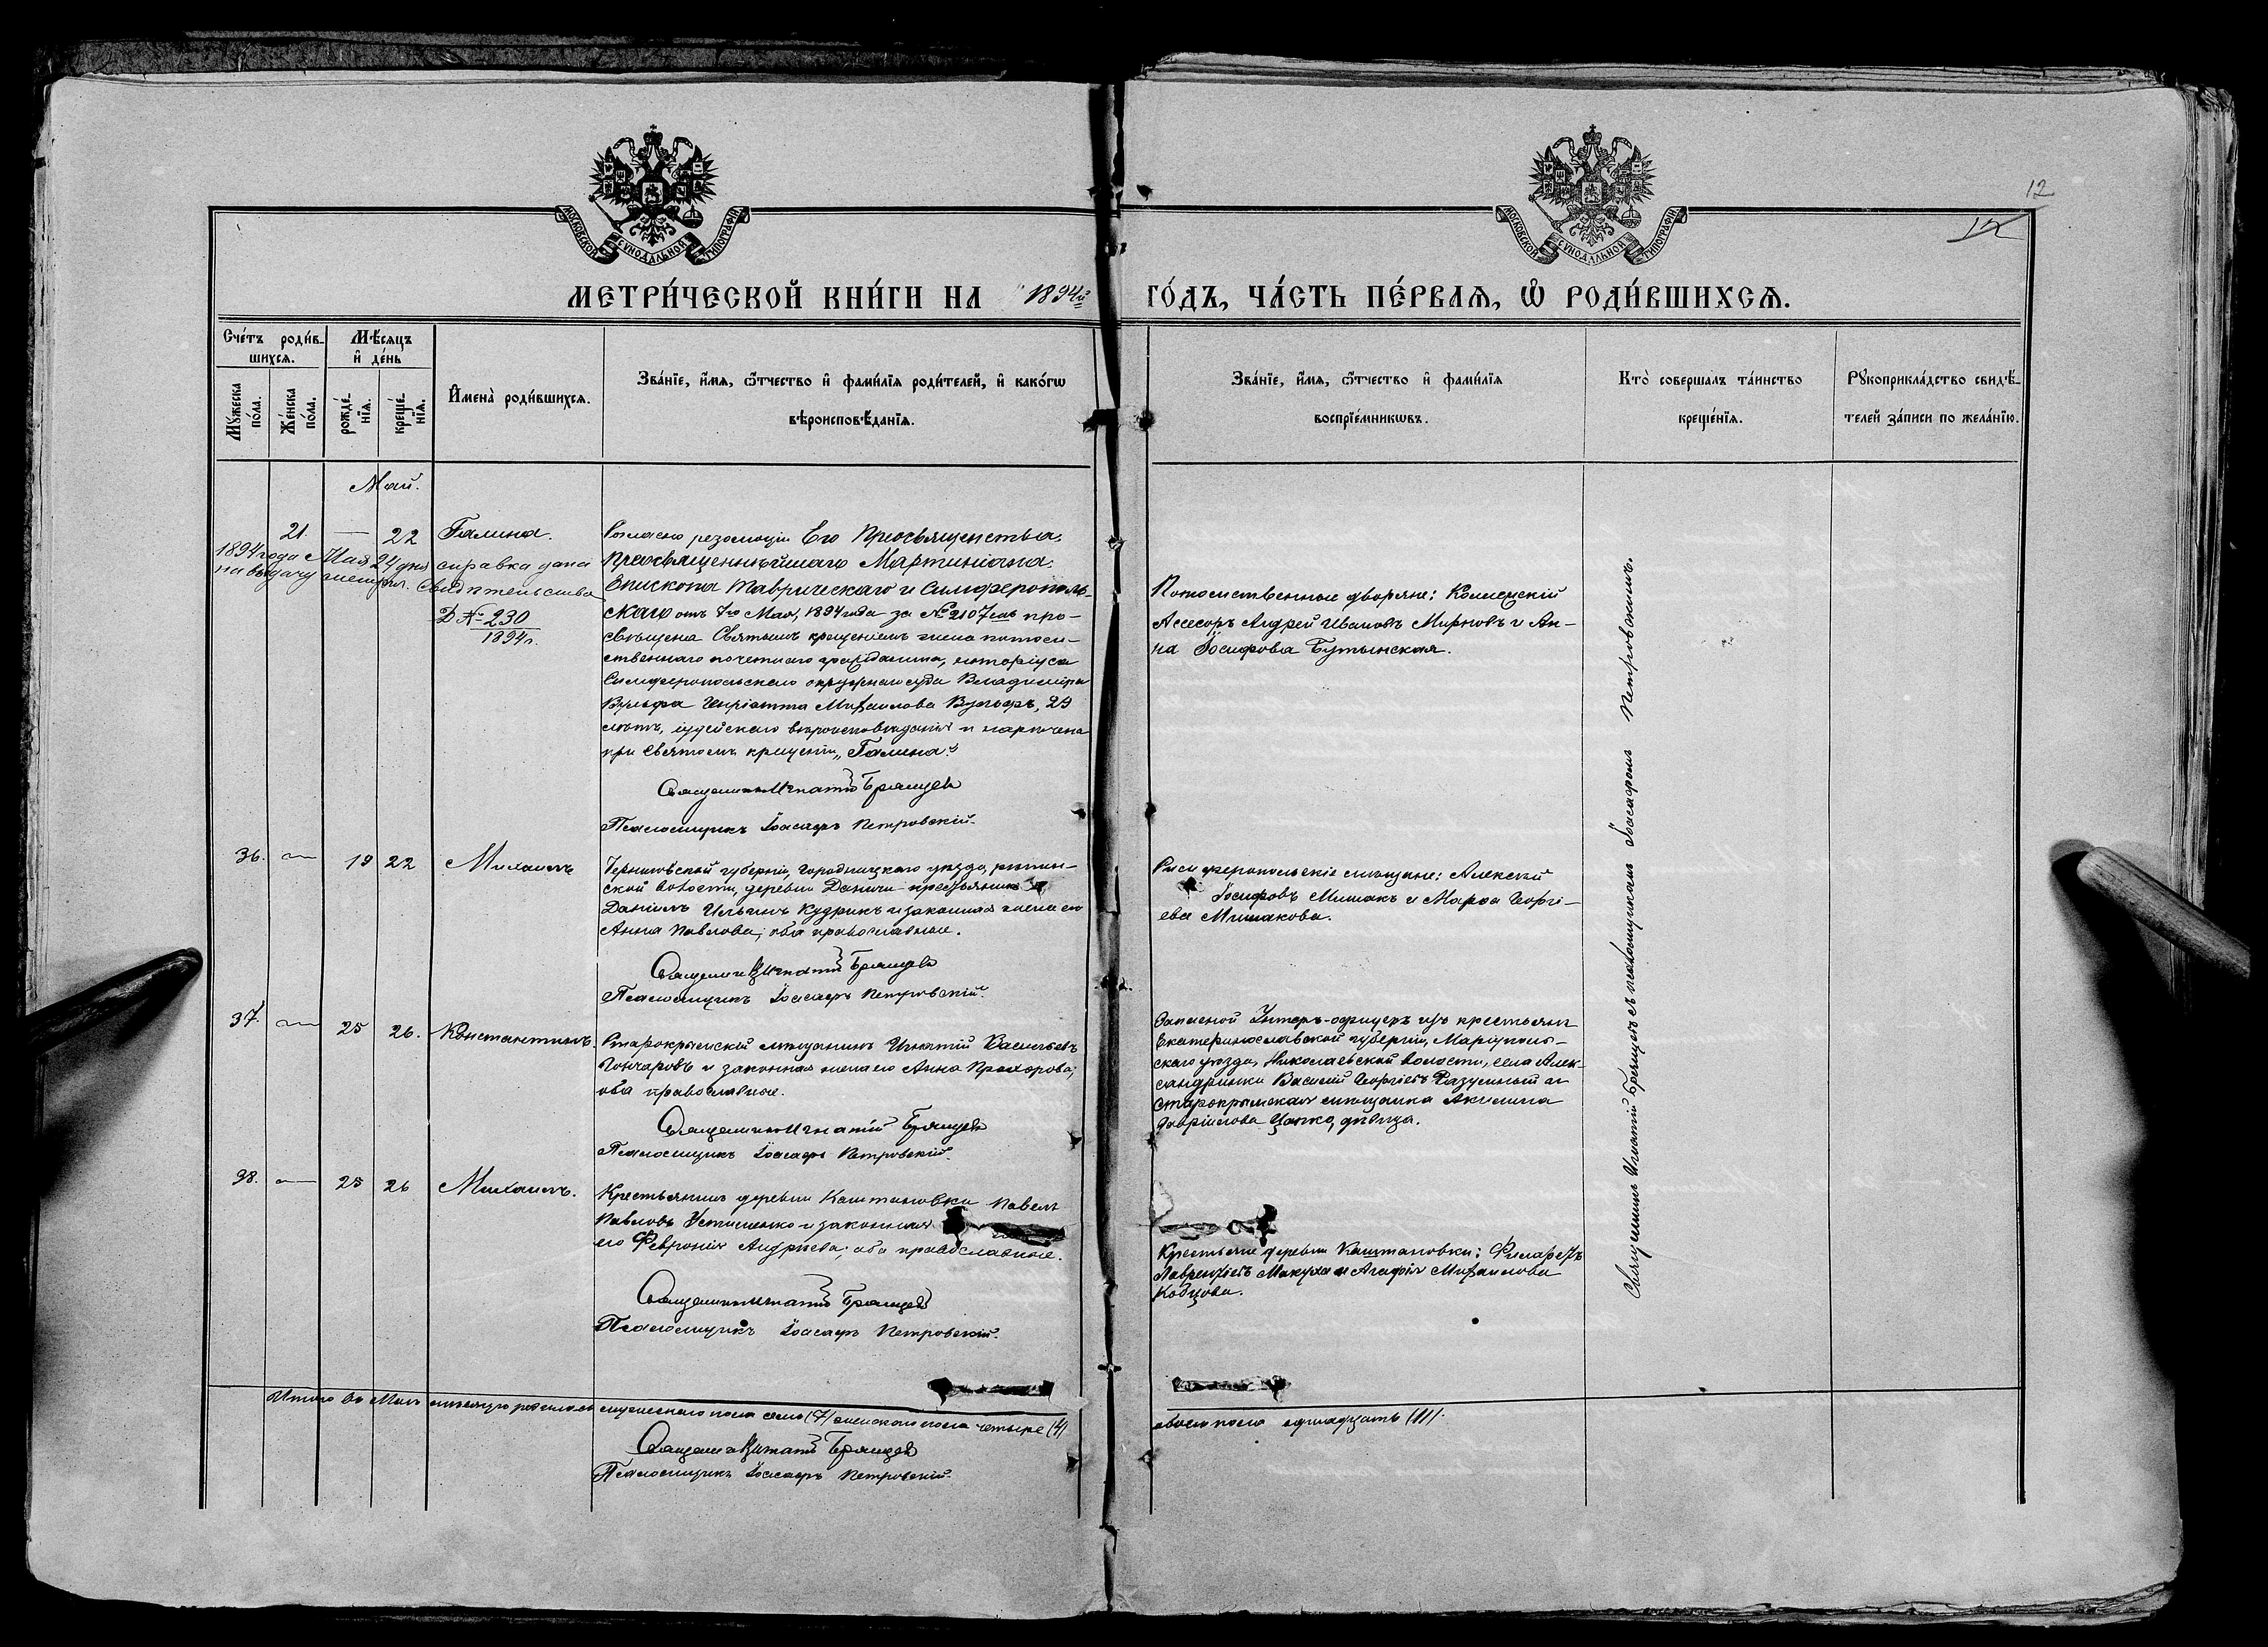 МОСКОВСКОЙ СѴНОДАЛЬНОЙ ТИПОГРАФІИ
МОСКОВСКОЙ СѴНОДАЛЬНОЙ ТИПОГРАФІИ
12
12
МЕТРИ́ЧЕСКОЙ КНИ́ГИ НА 1894й ГО́ДЪ, ЧА́СТЬ ПЕ́РВАЯ, Ѡ҆ РОДИ́ВШИХСЯ.
Сче́тъ роди́в-
шихся.
Мѣ́сяцъ
и҆ де́нь
Мꙋ́жеска по́ла.
Же́нска по́ла.
рожде́-нїя.
креще́-нїя.
И҆мена̀ роди́вшихся.
Зва́нїе, и҆́мя, ѻ҆́тчество и҆ фами́лїя роди́телей, и҆ како́гѡ
вѣроисповѣ́данїя.
Зва́нїе, и҆́мя, ѻ҆́тчество и҆ фами́лїя
воспрїе́мникѡвъ.
Кто̀ соверша́лъ та́инство
креще́нїя.
Рꙋкоприкла́дство свидѣ́-
телей за́писи по жела́нїю.
Май.
21 — 22 Галина.
1894 года Мая 24 дня справка дана
на выдачу метрич. Свидѣтельства
Д № 230
1894 г.
Согласно резолюціи Его Преосвященства,
Преосвященнѣйшаго Мартиніана,
Епископа Таврическаго и Симферополь-
скаго отъ 7го Мая, 1894 года за № 2107мъ про-
свѣщена Святымъ крещеніемъ жена потом-
ственнаго почетнаго гражданина, нотаріуса
Симферопольскаго окружнаго суда Владиміра
Вульфа Генріэтта Михаилова Вульфъ, 29
лѣтъ, іудейскаго вѣроисповѣданія и наречена
при Святомъ крещеніи „Галина“.
Священникъ Игнатій Брянцевъ
Псаломщикъ Іоасафъ Петровскій.
Потомственные дворяне: Коллежскій
Асессоръ Андрей Ивановъ Мирновъ и Ан-
на Іосифова Бутынская.
36. — 19 22 Михаилъ
Черниговской губерніи, Городницкаго уѣзда,
ской волости, деревни Даничи крестьянинъ
Даніилъ Ильинъ Кудрикъ и законная жена его
Анна Павлова; оба православные.
Священникъ Игнатій Брянцевъ
Псаломщикъ Іоасафъ Петровскій.
Симферопольскіе мѣщане: Алексѣй
Іосифовъ Мишакъ и Марѳа Георгі-
ева Мишакова.
37. — 25 26. Константинъ.
Старокрымскій мѣщанинъ Игнатій Васильевъ
Гончаровъ и законная жена его Анна Прохорова;
оба православные.
Священникъ Игнатій Брянцевъ
Псаломщикъ Іоасафъ Петровскій.
Запасной Унтеръ-офицеръ изъ крестьянъ
Екатеринославской губерніи, Маріуполь-
скаго уѣзда, Николаевской волости, села Алек-
сандринки Василій Георгіевъ Разумный и
старокрымская мѣщанка Акилина
Гавріилова Цапко, дѣвица.
38. — 25 26 Михаилъ.
Крестьянинъ деревни Каштановки Павелъ
Павловъ Устименко и законная
его Февронія Андреева; оба православные.
Священникъ Игнатій Брянцевъ
Псаломщикъ Іоасафъ Петровскій.
Крестьяне деревни Каштановки: Филаретъ
Лаврентіевъ Макуха и Агафія Михаилова
Кобцова.
Священникъ Игнатій Брянцевъ съ псаломщикомъ Іоасафомъ Петровскимъ.
Итого въ Маѣ мѣсяцѣ родилось мужескаго пола семь (7) женскаго пола четыре (4)
обоего пола одинадцать (11).
Священникъ Игнатій Брянцевъ
Псаломщикъ Іоасафъ Петровскій.